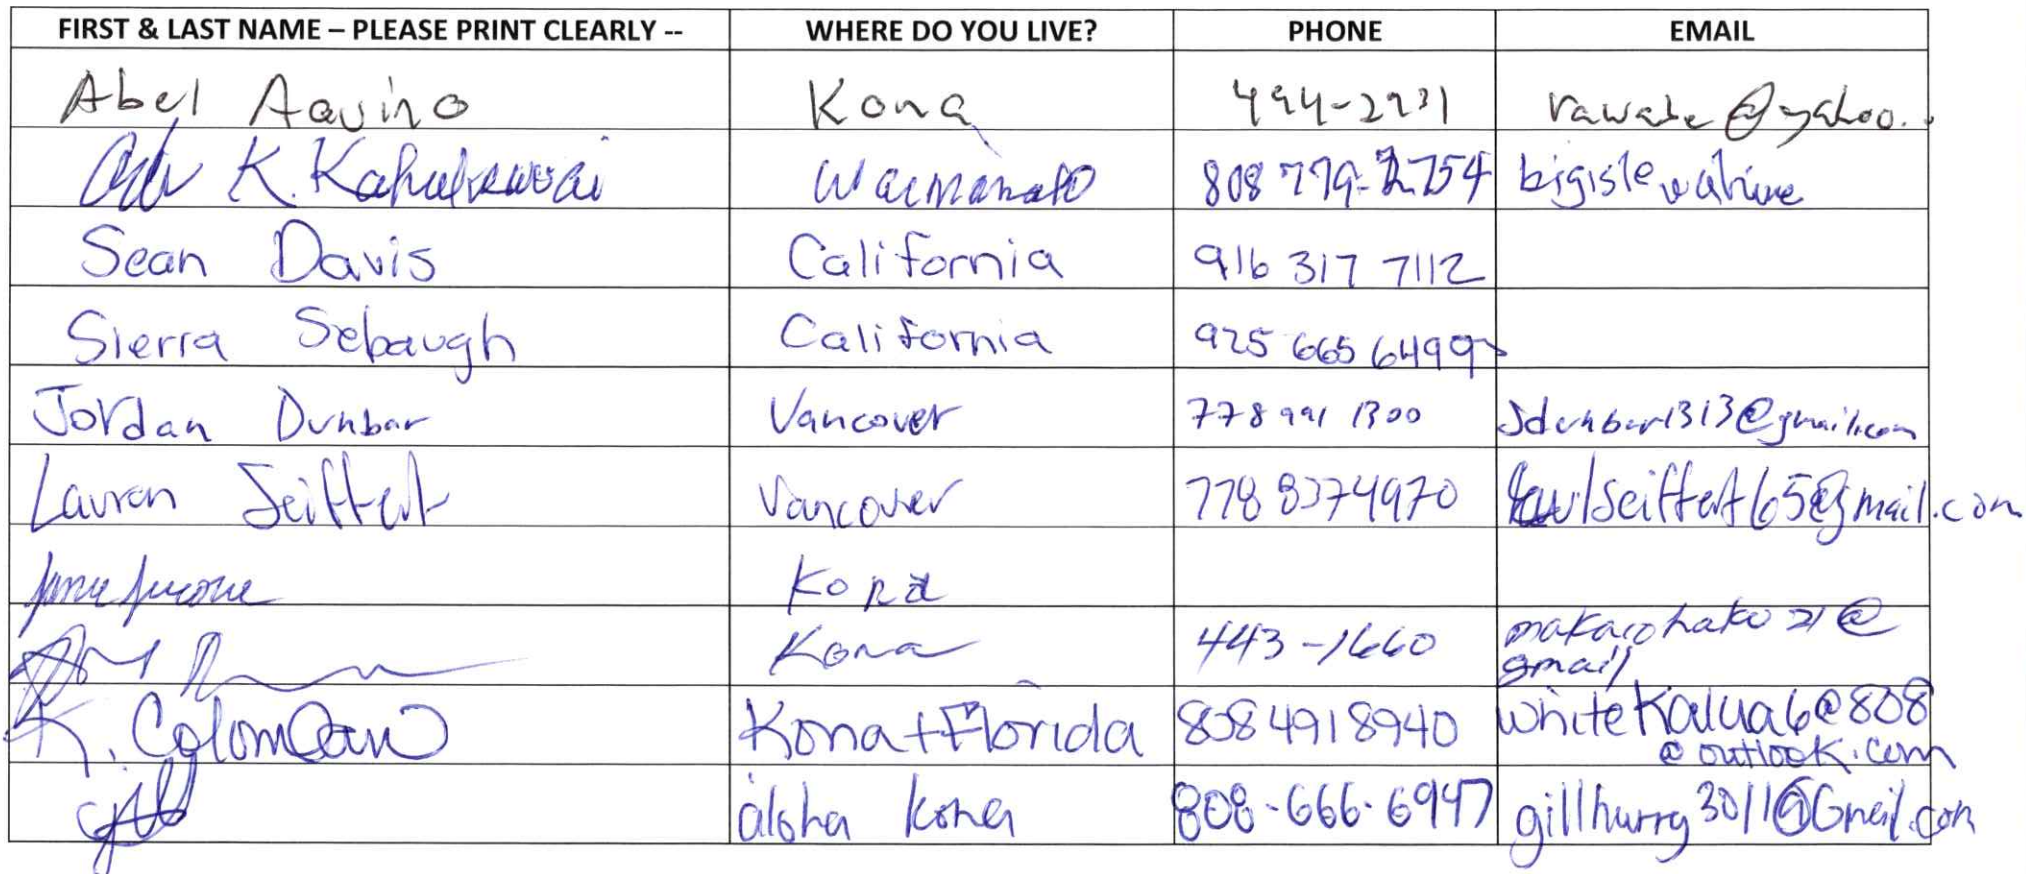 FIRST & LAST NAME – PLEASE PRINT CLEARLY -- WHERE DO YOU LIVE? PHONE EMAIL
Abel Aquino Kona 494-2931 rawabe@yahoo.
K. Waimanalo 808 779-2754 bigislewahine
Sean Davis California 916 317 7112
Sierra Sebaugh California 925 665 6499
Jordan Dunbar Vancouver 778 991 1300 Jdunbar1313@gmail.com
Lauren Seiffert Vancouver 778 8374970
Kona
Kona 443-1660
gmail
K. Kona + Florida 808 4918940 whiteKalua6@808
@outlook.com
aloha kona 808-666-6947 gillhurry3011@Gmeil.com